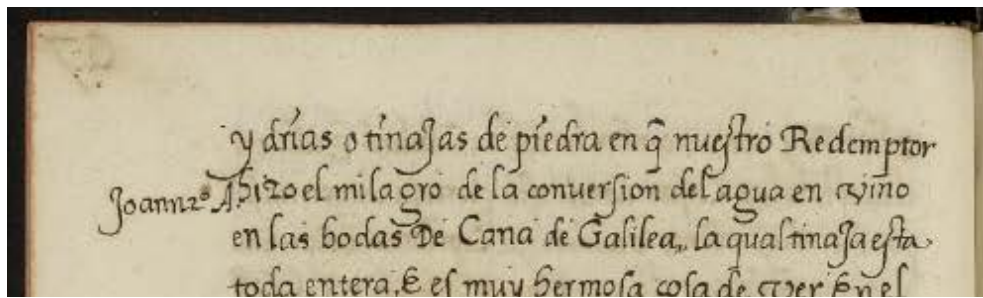 y drias o tinajas de piedra en q̃ nuestro Redemptor
Joann 2º A. hizo el milagro de la conuersion del agua en vino
en las bodas De Cana de Galilea, la qual tinaja esta
toda entera, & es muy hermosa cosa de ver En el